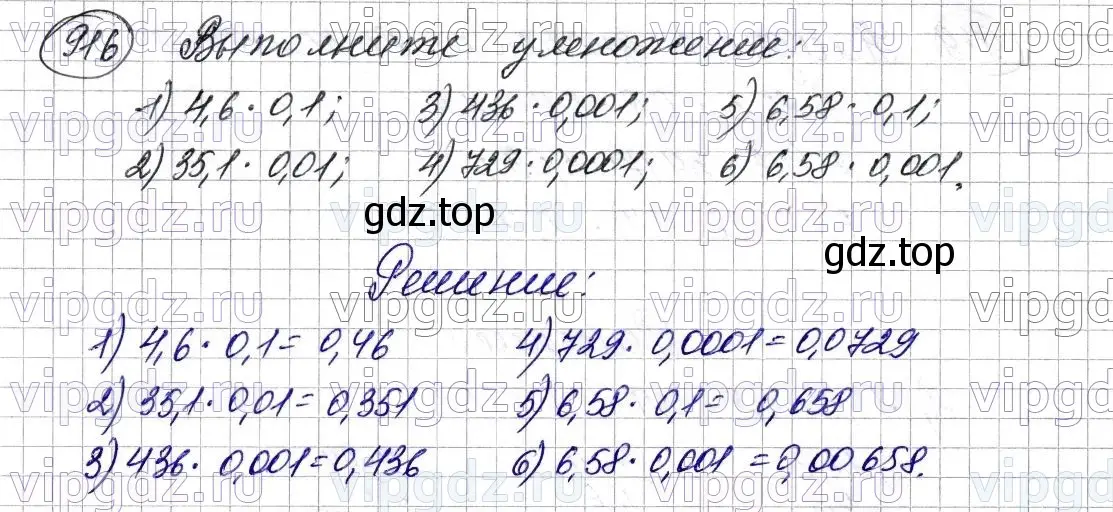 916 Выполните умножение:
1) 4,6 · 0,1; 3) 436 · 0,001; 5) 6,58 · 0,1;
2) 35,1 · 0,01; 4) 729 · 0,0001; 6) 6,58 · 0,001.
gdz.top
gdz.top
Решение:
1) 4,6 · 0,1 = 0,46 4) 729 · 0,0001 = 0,0729
2) 35,1 · 0,01 = 0,351 5) 6,58 · 0,1 = 0,658
3) 436 · 0,001 = 0,436 6) 6,58 · 0,001 = 0,00658.
vipgdz.ru